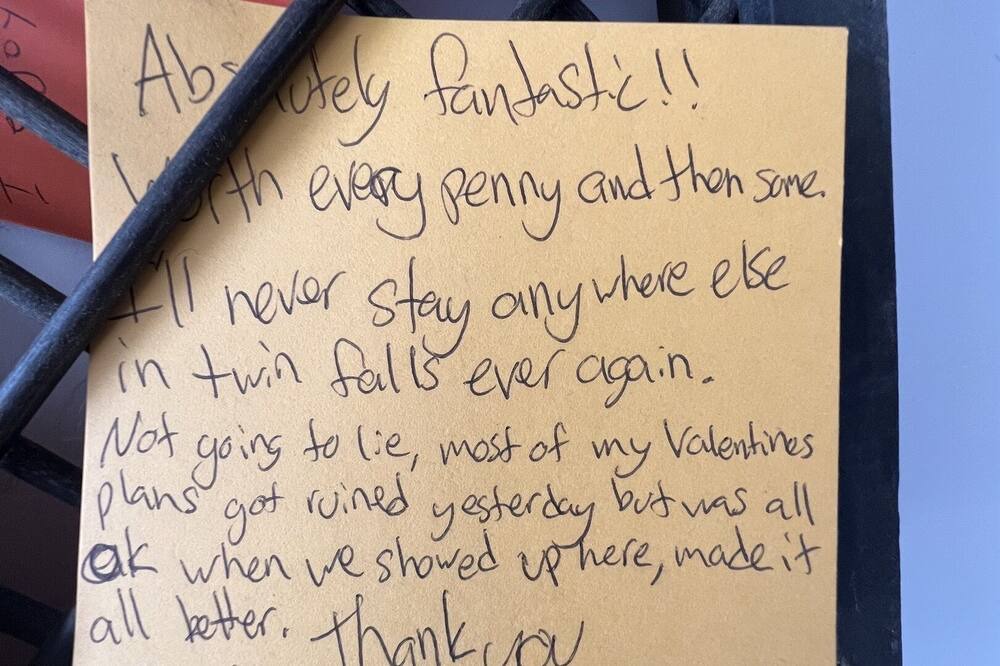 Absolutely fantastic!!
Worth every penny and then some.
I'll never stay anywhere else
in twin falls ever again.
Not going to lie, most of my Valentines
plans got ruined yesterday but was all
ok when we showed up here, made it
all better. Thank you